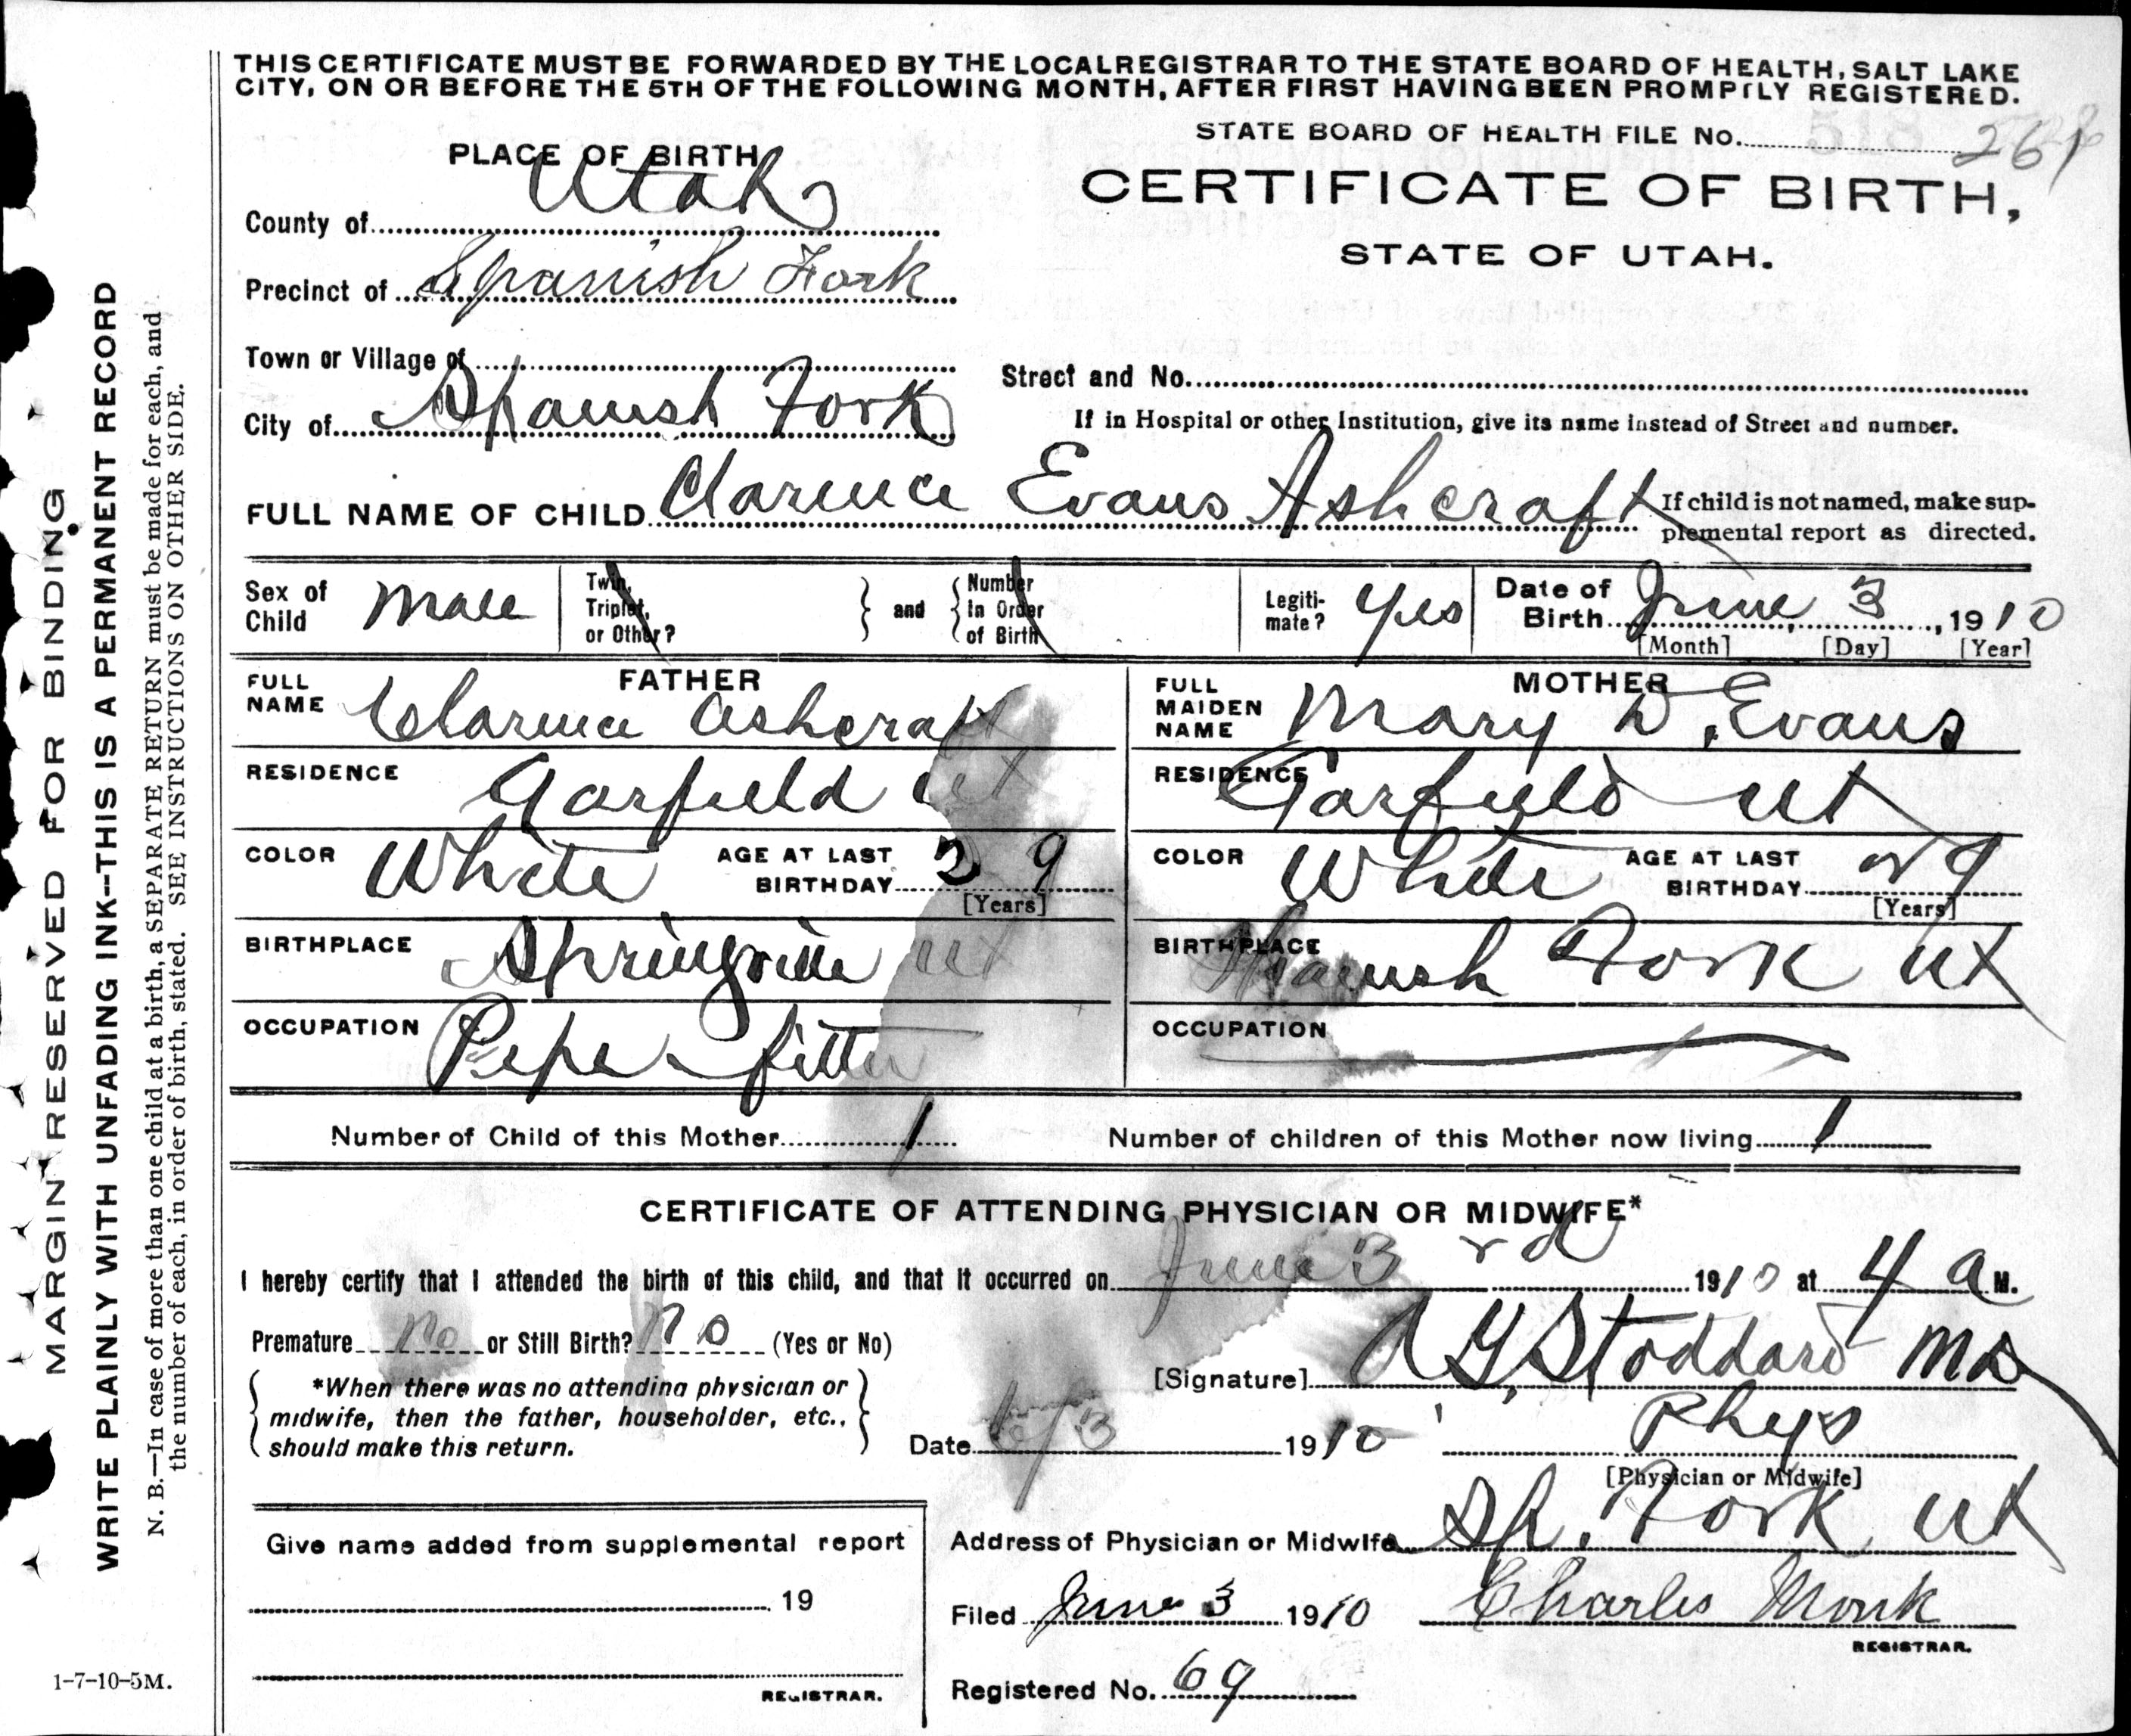 THIS CERTIFICATE MUST BE FORWARDED BY THE LOCAL REGISTRAR TO THE STATE BOARD OF HEALTH, SALT LAKE
CITY, ON OR BEFORE THE 5TH OF THE FOLLOWING MONTH, AFTER FIRST HAVING BEEN PROMPTLY REGISTERED.
STATE BOARD OF HEALTH FILE No. 518 261
PLACE OF BIRTH
CERTIFICATE OF BIRTH,
STATE OF UTAH.
County of Utah
Precinct of Spanish Fork
Town or Village of
Street and No.
City of Spanish Fork
If in Hospital or other Institution, give its name instead of Street and number.
FULL NAME OF CHILD Clarence Evans Ashcraft
If child is not named, make sup-
plemental report as directed.
Sex of Child Male
Twin, Triplet, or Other? } and { Number In Order of Birth
Legiti-mate? Yes
Date of Birth June 3, 1910
[Month] [Day] [Year]
FATHER
FULL NAME Clarence Ashcraft
RESIDENCE Garfield Ut
COLOR White AGE AT LAST BIRTHDAY 29
[Years]
BIRTHPLACE Springville Ut
OCCUPATION Pipe fitter
MOTHER
FULL MAIDEN NAME Mary D. Evans
RESIDENCE Garfield Ut
COLOR White AGE AT LAST BIRTHDAY 29
[Years]
BIRTHPLACE Spanish Fork Ut
OCCUPATION
Number of Child of this Mother 1 Number of children of this Mother now living 1
CERTIFICATE OF ATTENDING PHYSICIAN OR MIDWIFE*
I hereby certify that I attended the birth of this child, and that it occurred on June 3rd 1910 at 4 a M.
Premature No or Still Birth? No (Yes or No)
[Signature] Stoddard MD
*When there was no attending physician or
midwife, then the father, householder, etc.,
should make this return.
Date 6/3 1910
Phys
[Physician or Midwife]
Give name added from supplemental report
19
REGISTRAR.
Address of Physician or Midwife Sp. Fork Ut
Filed June 3 1910 Charles Monk
REGISTRAR.
Registered No. 69
MARGIN RESERVED FOR BINDING
WRITE PLAINLY WITH UNFADING INK--THIS IS A PERMANENT RECORD
N. B.—In case of more than one child at a birth, a SEPARATE RETURN must be made for each, and
the number of each, in order of birth, stated. SEE INSTRUCTIONS ON OTHER SIDE.
1-7-10-5M.